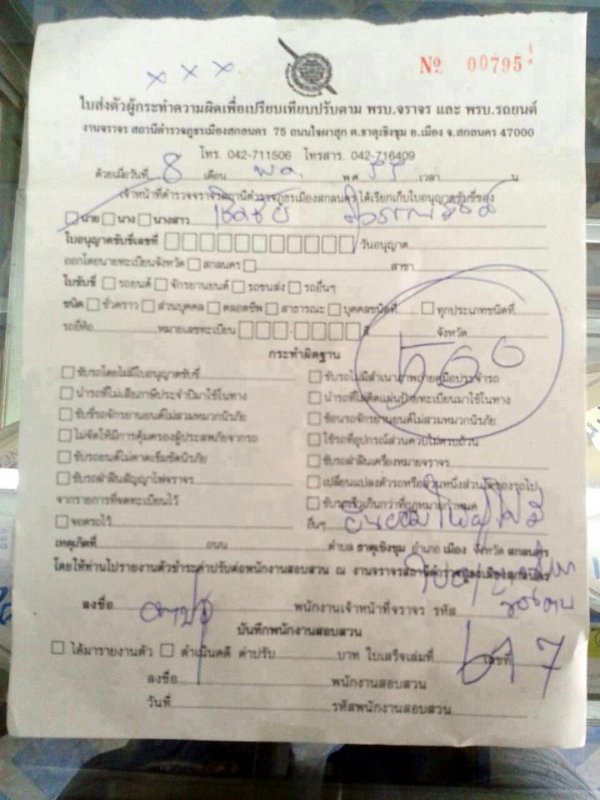 × × ×
Nº 00795
ใบส่งตัวผู้กระทำความผิดเพื่อเปรียบเทียบปรับตาม พรบ.จราจร และ พรบ.รถยนต์
งานจราจร สถานีตำรวจภูธรเมืองสกลนคร 75 ถนนใจผาสุก ต.ธาตุเชิงชุม อ.เมือง จ.สกลนคร 47000
โทร. 042-711506 โทรสาร. 042-716409
ด้วยเมื่อวันที่ 8 เดือน พ.ค. พ.ศ. 55 เวลา น
เจ้าหน้าที่ตำรวจจราจรสถานีตำรวจภูธรเมืองสกลนคร ได้เรียกเก็บใบอนุญาตขับขี่ของ
นาย นาง นางสาว
ใบอนุญาตขับขี่เลขที่ วันอนุญาต
ออกโดยนายทะเบียนจังหวัด สกลนคร สาขา
ใบขับขี่ รถยนต์ จักรยานยนต์ รถขนส่ง รถอื่นๆ
ชนิด ชั่วคราว ส่วนบุคคล ตลอดชีพ สาธารณะ บุคคลชนิดที่ ทุกประเภทชนิดที่
รถยี่ห้อ หมายเลขทะเบียน สี จังหวัด
500
กระทำผิดฐาน
ขับรถโดยไม่มีใบอนุญาตขับขี่ ขับรถไม่มีสำเนาภาพถ่ายคู่มือประจำรถ
นำรถที่ไม่เสียภาษีประจำปีมาใช้ในทาง นำรถที่ไม่ติดแผ่นป้ายทะเบียนมาใช้ในทาง
ขับขี่รถจักรยานยนต์ไม่สวมหมวกนิรภัย ซ้อนรถจักรยานยนต์ไม่สวมหมวกนิรภัย
ไม่จัดให้มีการคุ้มครองผู้ประสบภัยจากรถ ใช้รถที่อุปกรณ์ส่วนควบไม่ครบถ้วน
ขับรถยนต์ไม่คาดเข็มขัดนิรภัย ขับรถฝ่าฝืนเครื่องหมายจราจร
ขับรถฝ่าฝืนสัญญาไฟจราจร เปลี่ยนแปลงตัวรถหรือส่วนหนึ่งส่วนใดของรถไป
จากรายการที่จดทะเบียนไว้ ขับรถเร็วเกินกว่าที่กฎหมายกำหนด
จอดรถไว้ อื่นๆ ยินยอมให้ผู้ไม่มี
เหตุเกิดที่ ถนน ตำบล ธาตุเชิงชุม อำเภอ เมือง จังหวัด สกลนคร
โดยให้ท่านไปรายงานตัวชำระค่าปรับต่อพนักงานสอบสวน ณ งานจราจรสถานีตำรวจภูธรเมืองสกลนคร
ลงชื่อ พนักงานเจ้าหน้าที่จราจร รหัส
บันทึกพนักงานสอบสวน
ได้มารายงานตัว ดำเนินคดี ค่าปรับ บาท ใบเสร็จเล่มที่ เลขที่
ลงชื่อ พนักงานสอบสวน
วันที่ รหัสพนักงานสอบสวน